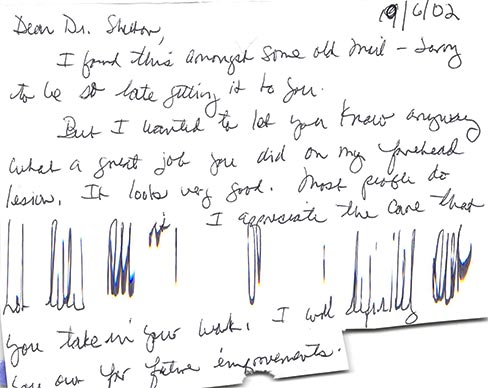 9/6/02
Dear Dr. Shelton,
I found this amongst some old mail - sorry
to be so late getting it to you.
But I wanted to let you know anyway
what a great job you did on my forehead
lesion. It looks very good. Most people do
I appreciate the care that
not
you take in your work. I will definitely
for future improvements.